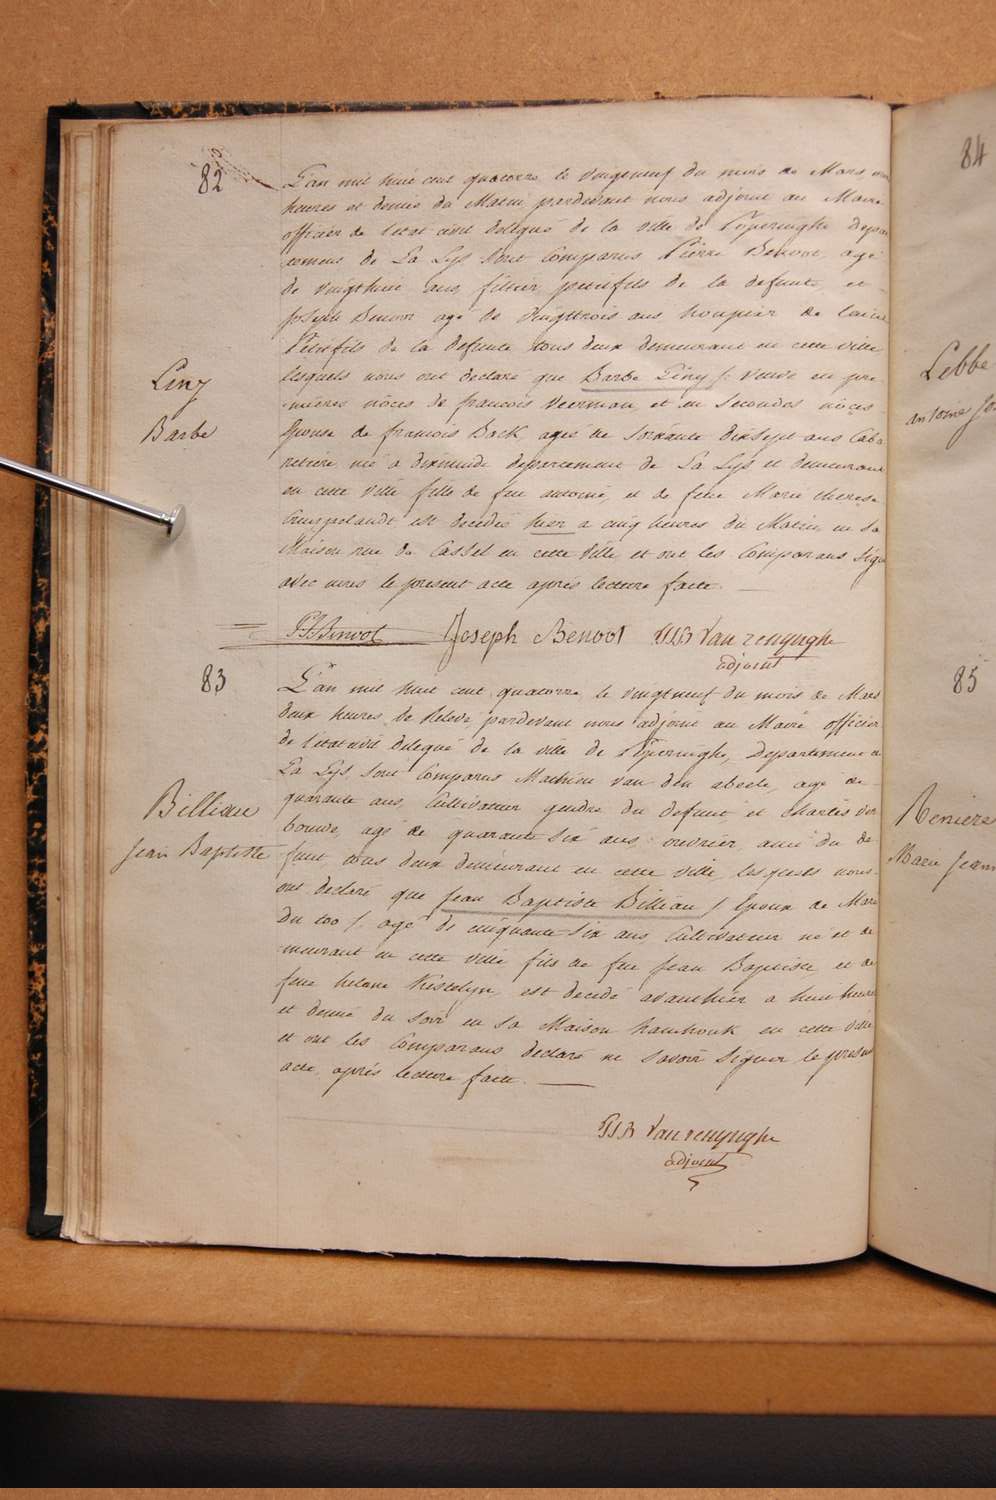 82
L'an mil huit cent quatorze le vingtneuf du mois de Mars
heures et demie du Matin pardevant nous adjoint au Maire
officier de l'etat civil delégué de la ville de Poperinghe depar
temens de La Lys sont Comparus Pierre Benoot, agé
de vingthuit ans filtier petitsfils de la defunte et
Joseph Benoot agé de vingttrois ans houpier de laine
Petitsfils de la defunte tous deux demeurant en cette ville
lesquels nous ont declaré que Barbe Liny /: veuve en pre
mieres nôces de francois Veerman, et en secondes nôces
Epouse de francois Back, agée de soixante dixsept ans Caba
retiere né a dixmude departement de La Lys et demeurant
en cette ville fille de feu antoine et de feue Marie therese
est decedée hier a cinq heures du Matin, en sa
Maison rue de Cassel en cette ville et ont les Comparans signé
avec nous le present acte après lecture faite.
Liny
Barbe
PJ Benoot Joseph Benoot PJB Van renynghe
adjoint
83
L'an mil huit cent quatorze, le vingtneuf du mois de Mars
deux heures de Relevé, pardevant nous adjoint au Maire officier
de l'etat civil delegué de la ville de Poperinghe, Departement de
La Lys, sont Comparus Mathieu Van den abeele, agé de
quarante ans, Cultivateur gendre du defunt et charles Ver
bouwe, agé de quarante six ans, ouvrier, ami du de
funt, tous deux demeurant en cette ville, lesquels nous
ont declaré que Jean Baptiste Billiau / Epoux de Marie
Du too /, agé de cinquante-six ans, Cultivateur né et de
meurant en cette ville fils de feu Jean Baptiste et de
feue helene Kestelyn, est decedé avanthier a huit heures
et demie du soir en sa Maison hamhouk en cette ville
et ont les Comparans declaré ne savoir signer le present
acte, après lecture faite.
Billiau
Jean Baptiste
PJB Van renynghe
adjoint
84
Lebbe
antoine Jo
85
Reniere
Marie Jeann